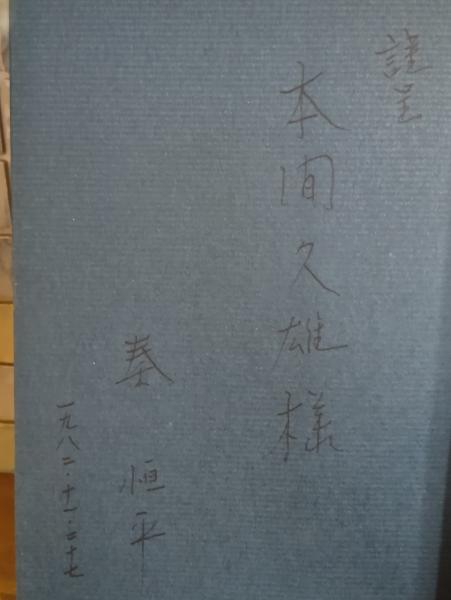 謹呈
本間久雄様
秦恒平
一九八二・十一・二十七